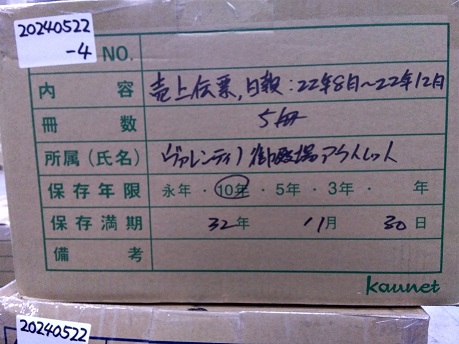 20240522
-4
NO.
内容 売上伝票,日報:22年8月〜22年12月
冊数 5冊
所属(氏名) ヴァレンティノ 御殿場アウトレット
保存年限 永年・10年・5年・3年・ 年
保存満期 32年 11月 30日
備考
kaunet
20240522